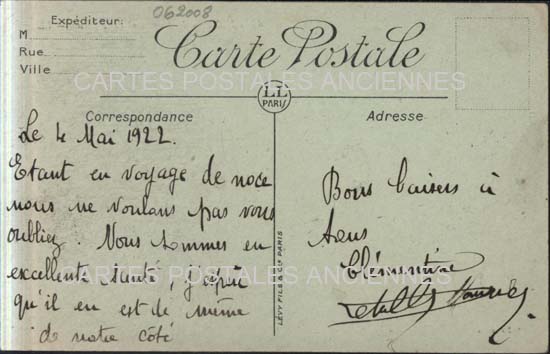 Expéditeur:
M
Rue
Ville
062008
Carte Postale
CARTES POSTALES ANCIENNES
LL
PARIS
Correspondance
Adresse
Le 4 Mai 1922.
Etant en voyage de noce
nous ne voulons pas vous
oubliez. Nous sommes en
excellente santé, j'espère
qu'il en est de même
de notre côté
LÉVY FILS & Cie PARIS
Bons baisers à
tous
Clémentine
CARTES POSTALES ANCIENNES